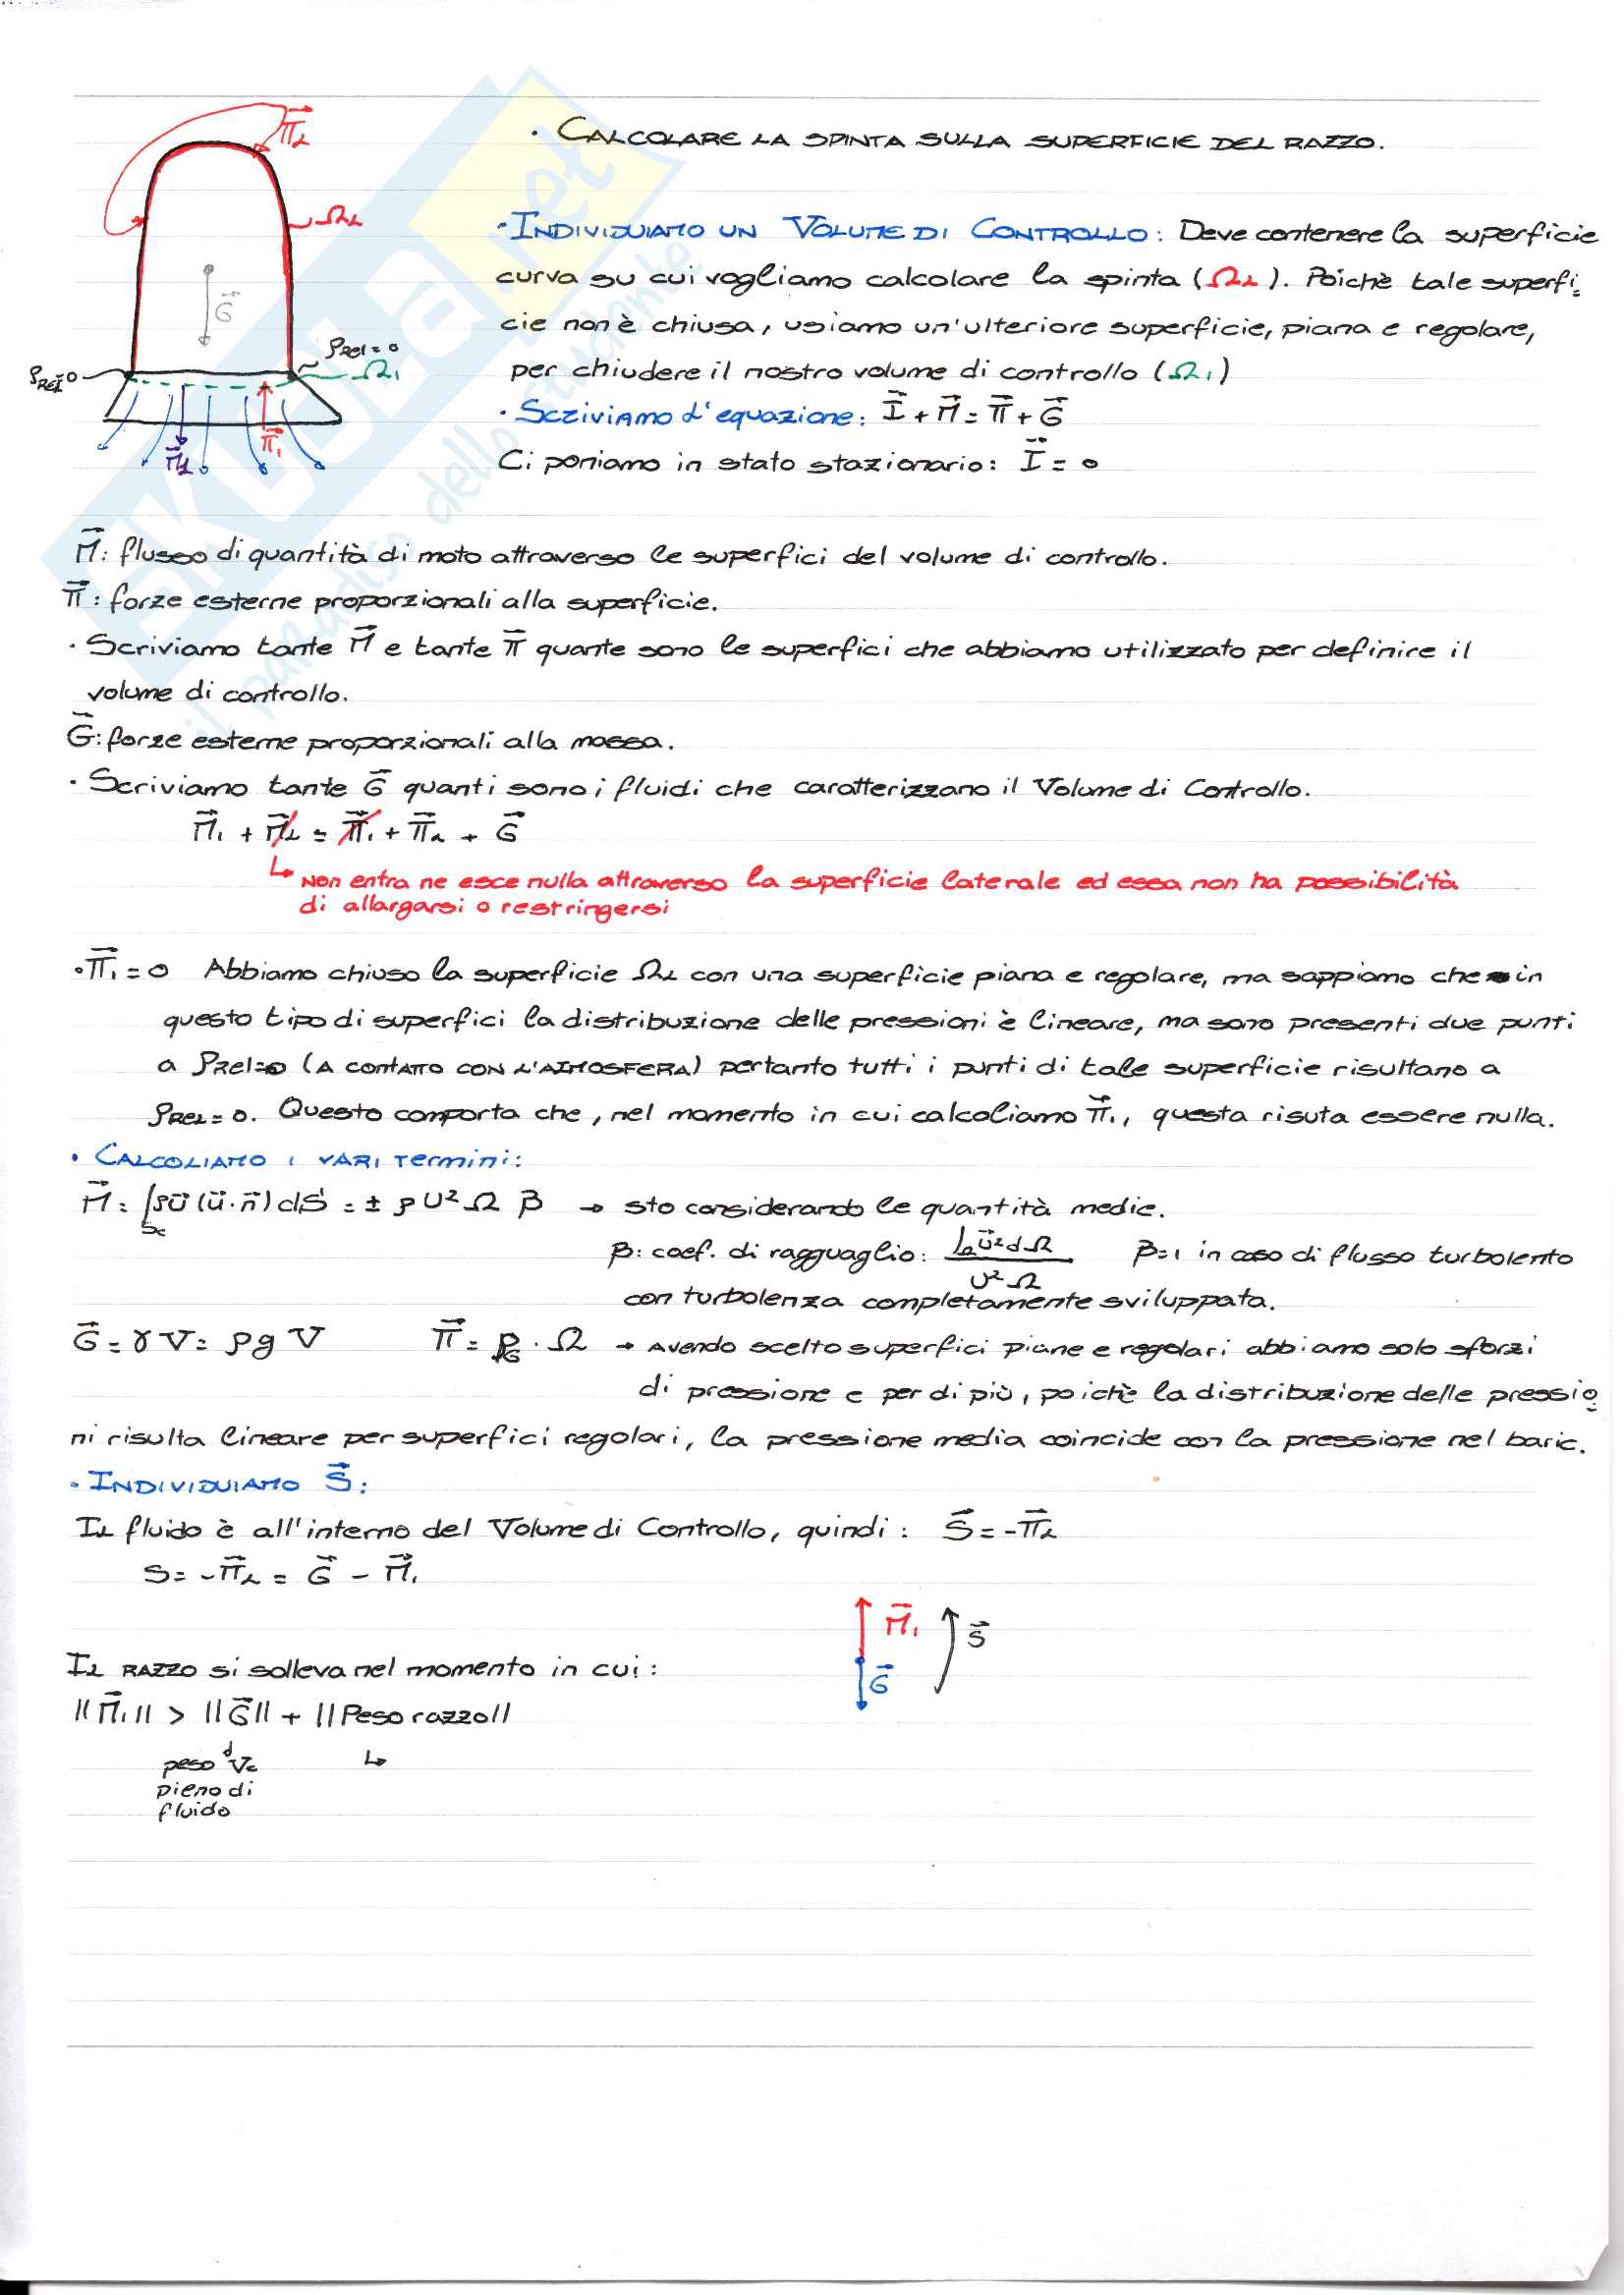 • CALCOLARE LA SPINTA SULLA SUPERFICIE DEL RAZZO.
Π⃗L
ΩL
G⃗
PREL=0
PREL=0
Ω1
M⃗1
Π⃗1
• INDIVIDUIAMO UN VOLUME DI CONTROLLO: Deve contenere la superficie
curva su cui vogliamo calcolare la spinta (ΩL). Poichè tale superfi-
cie non è chiusa, usiamo un'ulteriore superficie, piana e regolare,
per chiudere il nostro volume di controllo (Ω1)
• Scriviamo l'equazione: I⃗ + M⃗ = Π⃗ + G⃗
Ci poniamo in stato stazionario: I⃗ = 0
M⃗: flusso di quantità di moto attraverso le superfici del volume di controllo.
Π⃗: forze esterne proporzionali alla superficie.
• Scriviamo tante M⃗ e tante Π⃗ quante sono le superfici che abbiamo utilizzato per definire il
volume di controllo.
G⃗: forze esterne proporzionali alla massa.
• Scriviamo tante G⃗ quanti sono i fluidi che caratterizzano il Volume di Controllo.
M⃗1 + M⃗L = Π⃗1 + Π⃗L + G⃗
↳ Non entra ne esce nulla attraverso la superficie laterale ed essa non ha possibilità
di allargarsi o restringersi
• Π⃗1 = 0 Abbiamo chiuso la superficie ΩL con una superficie piana e regolare, ma sappiamo che in
questo tipo di superfici la distribuzione delle pressioni è lineare, ma sono presenti due punti
a Prel=0 (A CONTATTO CON L'ATMOSFERA) pertanto tutti i punti di tale superficie risultano a
PREL=0. Questo comporta che, nel momento in cui calcoliamo Π⃗1, questa risuta essere nulla.
• CALCOLIAMO I VARI Termini:
M⃗ = ∫Sc ρu⃗ (u⃗·n⃗) dS = ± ρ U² Ω β → sto considerando le quantità medie.
β: coef. di ragguaglio: ∫Ω u⃗² dΩ / U² Ω β=1 in caso di flusso turbolento
con turbolenza completamente sviluppata.
G⃗ = γ V = ρ g V Π⃗ = pG · Ω → Avendo scelto superfici piane e regolari abbiamo solo sforzi
di pressione e per di più, poichè la distribuzione delle pressio-
ni risulta lineare per superfici regolari, la pressione media coincide con la pressione nel baric.
• INDIVIDUIAMO S⃗:
IL fluido è all'interno del Volume di Controllo, quindi: S⃗ = -Π⃗L
S = -Π⃗L = G⃗ - M⃗1
M⃗1
S⃗
G⃗
IL RAZZO si solleva nel momento in cui:
||M⃗1|| > ||G⃗|| + ||Peso razzo||
peso d Vc ↳
pieno di
fluido
SKUOLA.net
il paradiso dello studente